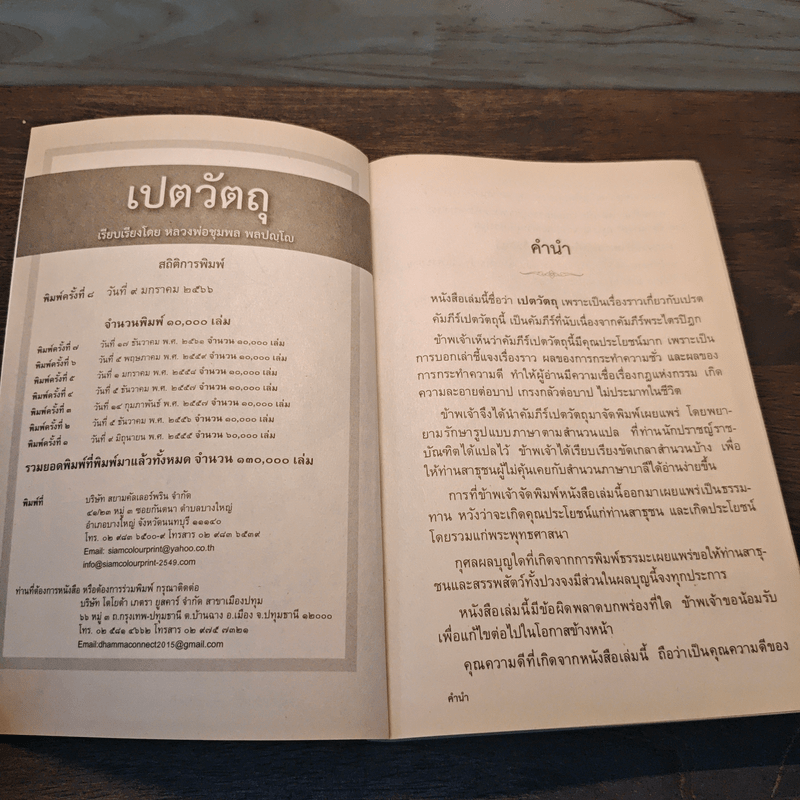 เปตวัตถุ
เรียบเรียงโดย หลวงพ่อชุมพล พลปญฺโญ
สถิติการพิมพ์
พิมพ์ครั้งที่ ๘ วันที่ ๙ มกราคม ๒๕๖๖
จำนวนพิมพ์ ๑๐,๐๐๐ เล่ม
พิมพ์ครั้งที่ ๗ วันที่ ๑๗ ธันวาคม พ.ศ. ๒๕๖๑ จำนวน ๑๐,๐๐๐ เล่ม
พิมพ์ครั้งที่ ๖ วันที่ ๕ พฤษภาคม พ.ศ. ๒๕๕๙ จำนวน ๑๐,๐๐๐ เล่ม
พิมพ์ครั้งที่ ๕ วันที่ ๑ มกราคม พ.ศ. ๒๕๕๘ จำนวน ๑๐,๐๐๐ เล่ม
พิมพ์ครั้งที่ ๔ วันที่ ๕ ธันวาคม พ.ศ. ๒๕๕๗ จำนวน ๑๐,๐๐๐ เล่ม
พิมพ์ครั้งที่ ๓ วันที่ ๑๔ กุมภาพันธ์ พ.ศ. ๒๕๕๗ จำนวน ๑๐,๐๐๐ เล่ม
พิมพ์ครั้งที่ ๒ วันที่ ๕ ธันวาคม พ.ศ. ๒๕๕๖ จำนวน ๑๐,๐๐๐ เล่ม
พิมพ์ครั้งที่ ๑ วันที่ ๙ มิถุนายน พ.ศ. ๒๕๕๕ จำนวน ๖๐,๐๐๐ เล่ม
รวมยอดพิมพ์ที่พิมพ์มาแล้วทั้งหมด จำนวน ๑๓๐,๐๐๐ เล่ม
พิมพ์ที่ บริษัท สยามคัลเลอร์พริน จำกัด
๔๑/๒๓ หมู่ ๓ ซอยกันตนา ตำบลบางใหญ่
อำเภอบางใหญ่ จังหวัดนนทบุรี ๑๑๑๔๐
โทร. ๐๒ ๙๘๓ ๖๕๐๐-๙ โทรสาร ๐๒ ๙๘๓ ๖๕๓๙
Email: siamcolourprint@yahoo.co.th
info@siamcolourprint-2549.com
ท่านที่ต้องการหนังสือ หรือต้องการร่วมพิมพ์ กรุณาติดต่อ
บริษัท โตโยต้า เภตรา ยูสคาร์ จำกัด สาขาเมืองปทุม
๖๖ หมู่ ๓ ถ.กรุงเทพ-ปทุมธานี ต.บ้านฉาง อ.เมือง จ.ปทุมธานี ๑๒๐๐๐
โทร. ๐๒ ๕๘๑ ๔๖๖๒ โทรสาร ๐๒ ๙๗๕ ๗๓๒๑
Email:dhammaconnect2015@gmail.com
คำนำ
หนังสือเล่มนี้ชื่อว่า เปตวัตถุ เพราะเป็นเรื่องราวเกี่ยวกับเปรต
คัมภีร์เปตวัตถุนี้ เป็นคัมภีร์ที่นับเนื่องจากคัมภีร์พระไตรปิฎก
ข้าพเจ้าเห็นว่าคัมภีร์เปตวัตถุนี้มีคุณประโยชน์มาก เพราะเป็น
การบอกเล่าชี้แจงเรื่องราว ผลของการกระทำความชั่ว และผลของ
การกระทำความดี ทำให้ผู้อ่านมีความเชื่อเรื่องกฎแห่งกรรม เกิด
ความละอายต่อบาป เกรงกลัวต่อบาป ไม่ประมาทในชีวิต
ข้าพเจ้าจึงได้นำคัมภีร์เปตวัตถุมาจัดพิมพ์เผยแพร่ โดยพยา-
ยามรักษารูปแบบภาษาตามสำนวนแปล ที่ท่านนักปราชญ์ราช-
บัณฑิตได้แปลไว้ ข้าพเจ้าได้เรียบเรียงขัดเกลาสำนวนบ้าง เพื่อ
ให้ท่านสาธุชนผู้ไม่คุ้นเคยกับสำนวนภาษาบาลีได้อ่านง่ายขึ้น
การที่ข้าพเจ้าจัดพิมพ์หนังสือเล่มนี้ออกมาเผยแพร่เป็นธรรม-
ทาน หวังว่าจะเกิดคุณประโยชน์แก่ท่านสาธุชน และเกิดประโยชน์
โดยรวมแก่พระพุทธศาสนา
กุศลผลบุญใดที่เกิดจากการพิมพ์ธรรมะเผยแพร่ขอให้ท่านสาธุ-
ชนและสรรพสัตว์ทั้งปวงจงมีส่วนในผลบุญนี้จงทุกประการ
หนังสือเล่มนี้มีข้อผิดพลาดบกพร่องที่ใด ข้าพเจ้าขอน้อมรับ
เพื่อแก้ไขต่อไปในโอกาสข้างหน้า
คุณความดีที่เกิดจากหนังสือเล่มนี้ ถือว่าเป็นคุณความดีของ
คำนำ